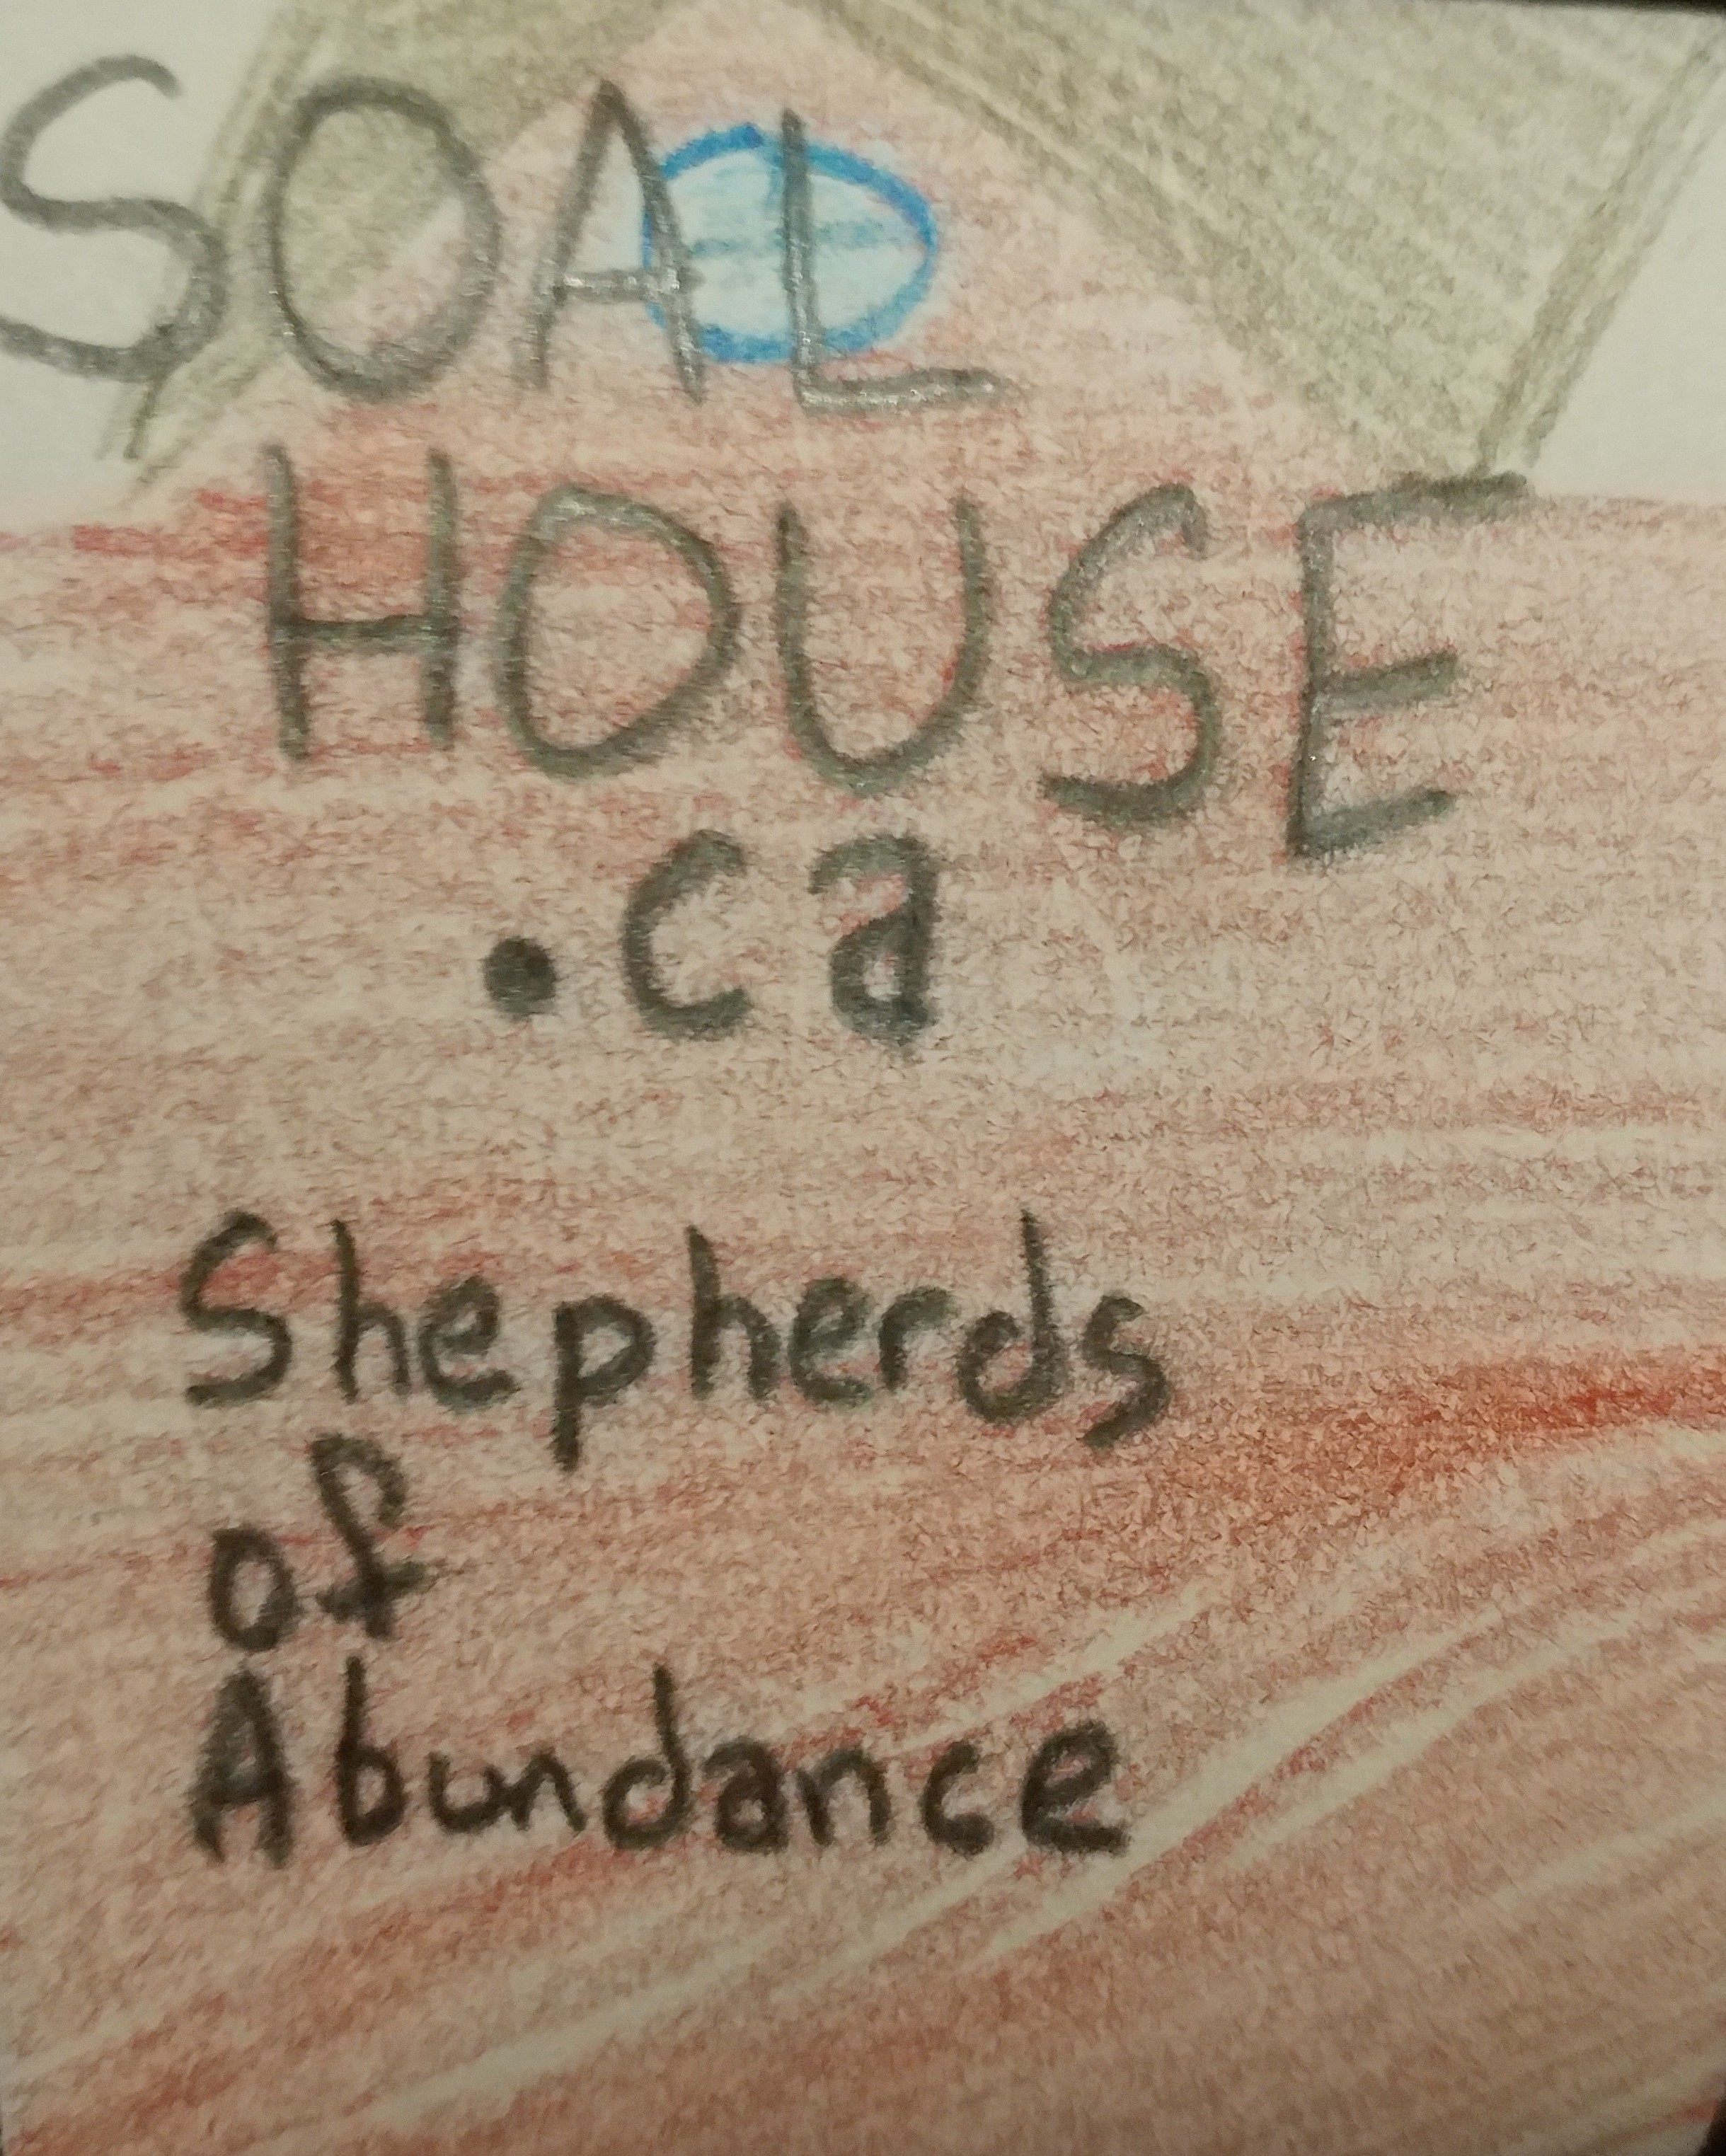 SOAL
HOUSE
.ca
Shepherds
of
Abundance